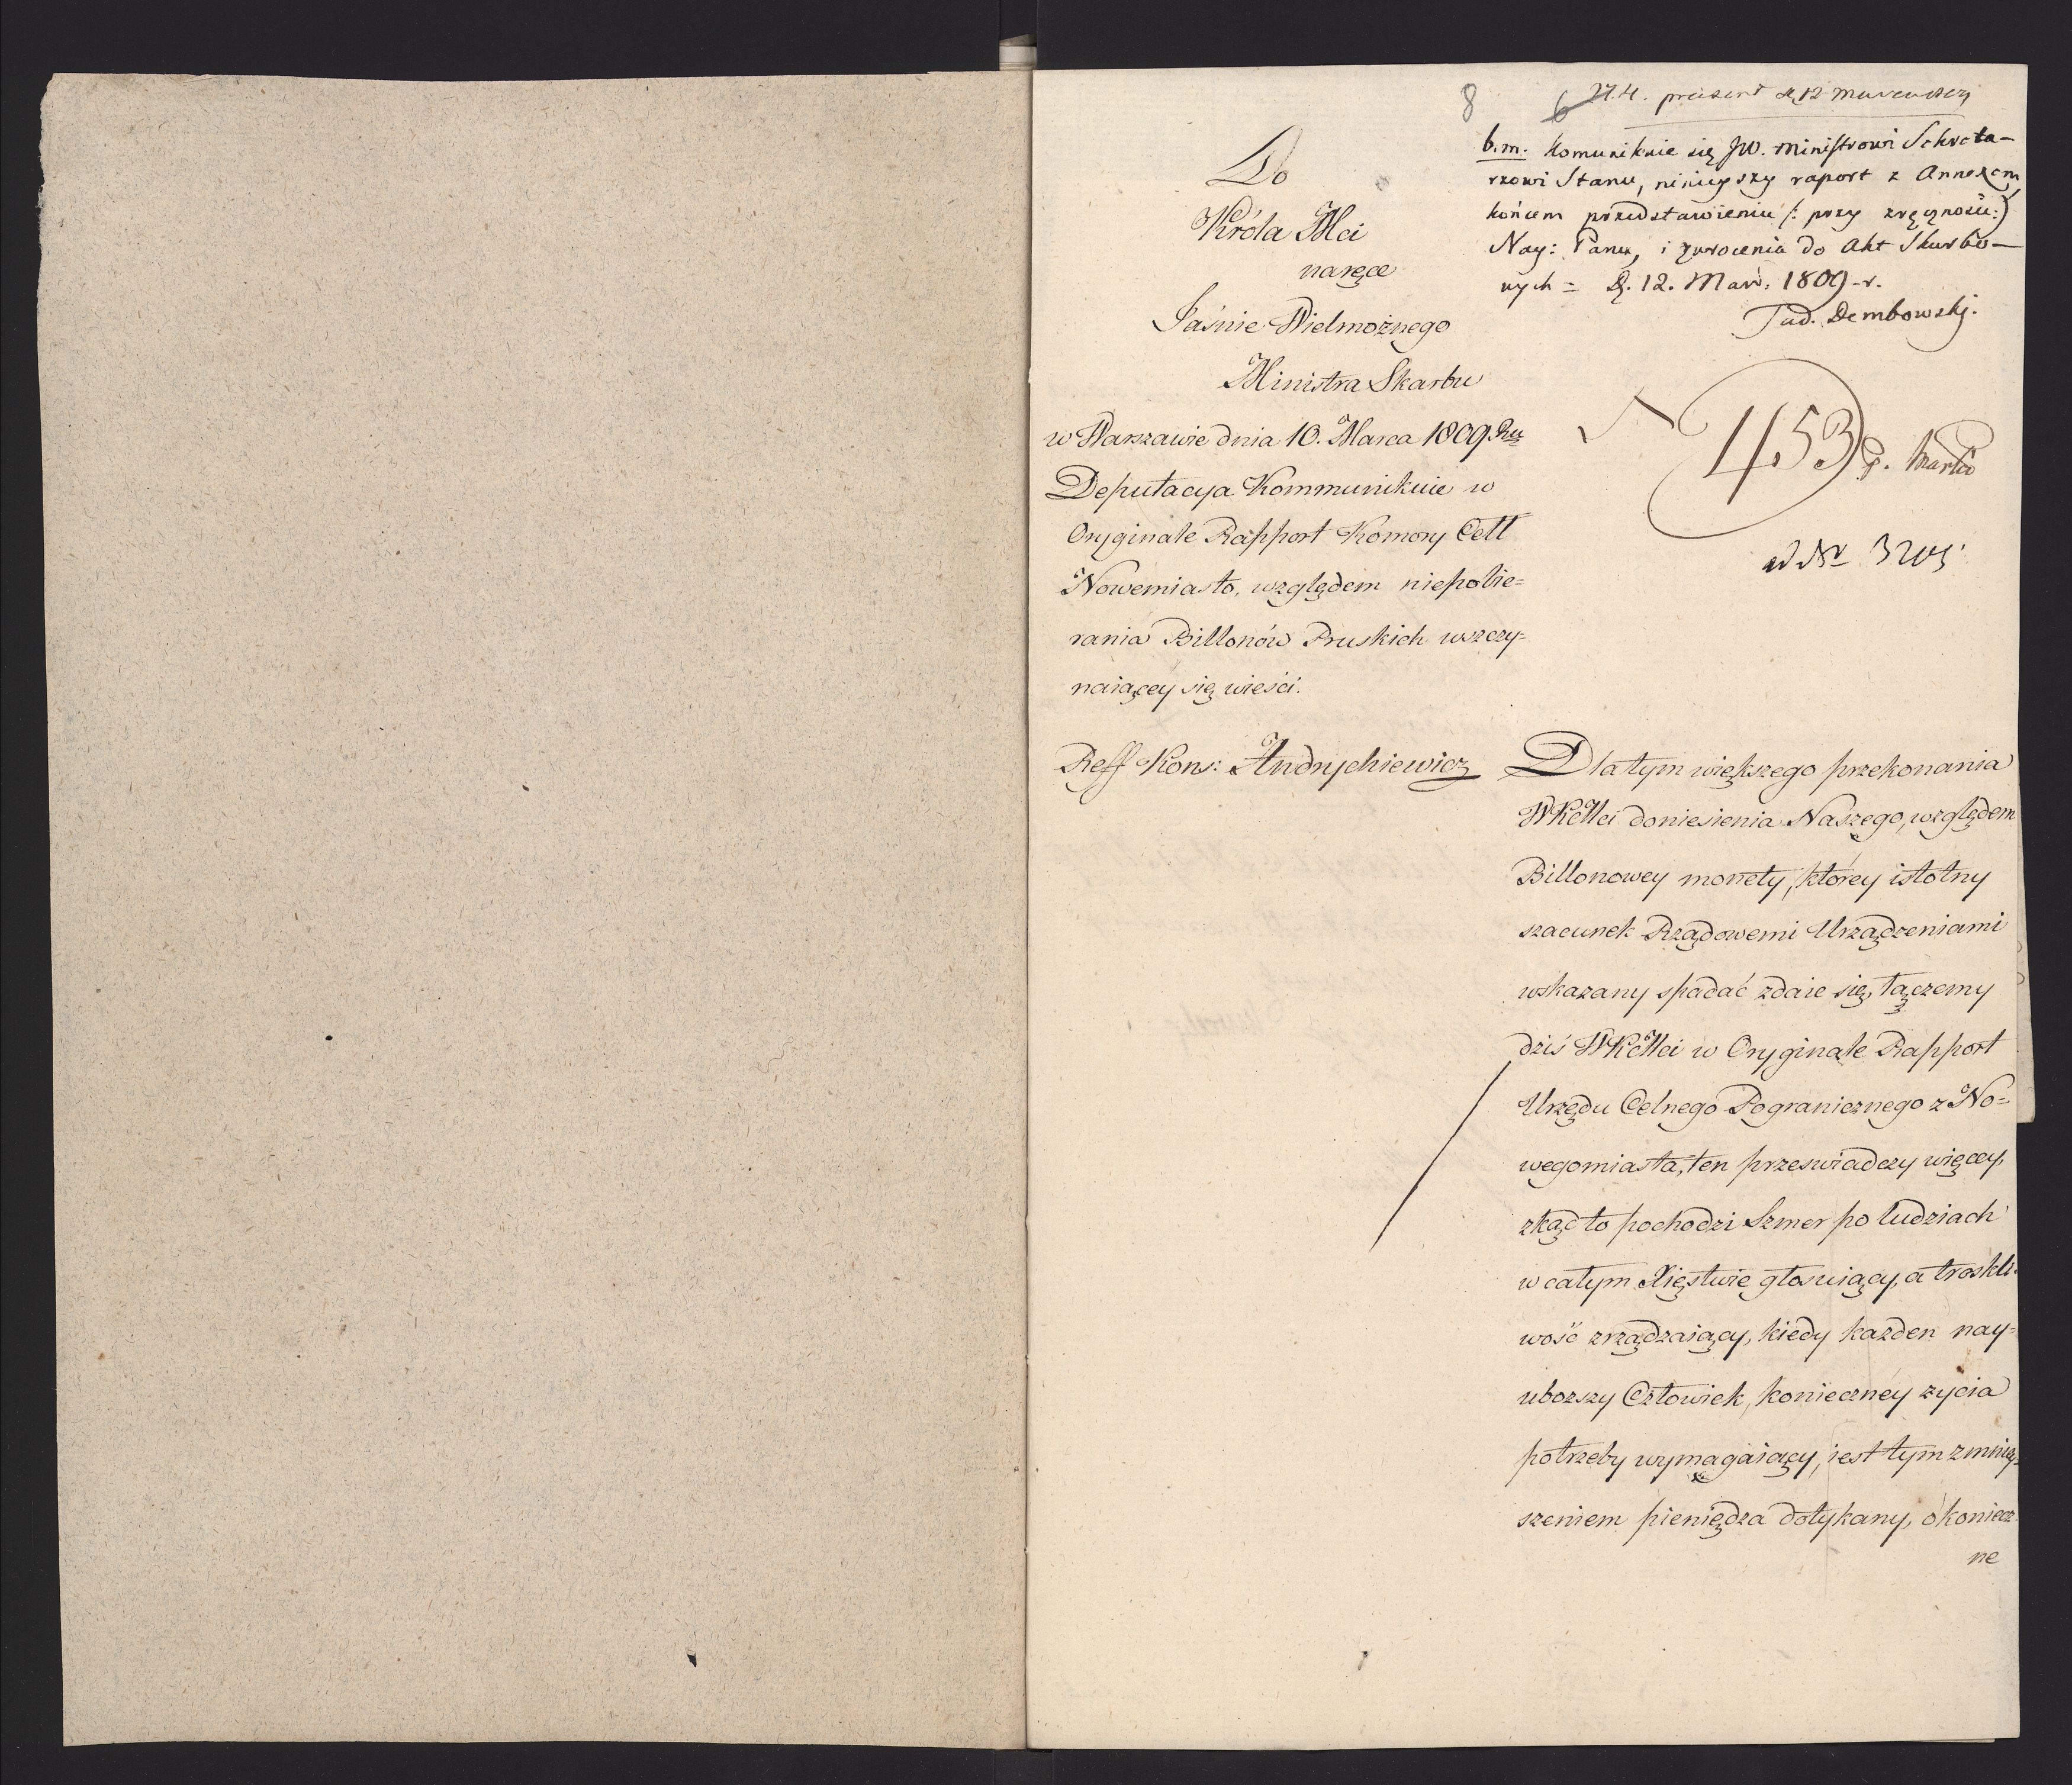 8 6
praesent d. 12
b.m. Komunikuie się JW. Ministrowi Sekreta-
rzowi Stanu, ninieyszy raport z Annexem
końcem przedstawienia /: przy zręcznosci :/
Nay: Panu, i zwrocenia do Akt Skarbo-
wych = D. 12. Mar: 1809 r.
Tad. Dembowski.
Do
Króla Mci
naręce
Jaśnie Wielmożnego
Ministra Skarbu
w Warszawie dnia 10. Marca 1809 Ru
453
Deputacya Kommunikuie w
Oryginale Rapport Komory Cell
Nowemiasto, względem niepobie=
rania Billonów Pruskich wszczy=
naiącey się wieści.
Reff Kons: Andrychiewicz
Dla tym większego przekonania
WKMci doniesienia Naszego, względem
Billonowey monety, którey istotny
szacunek Rządowemi Urządzeniami
wskazany spadać zdaie się, łączemy
dziś WKMci w Oryginale Rapport
Urzędu Celnego Pogranicznego z No=
wegomiasta, ten przeswiadczy więcey,
zkąd to pochodzi Szmer po ludziach
w całym Xięstwie głosuiący, a troskli-
wość zrządzaiący, kiedy każden nay=
uboższy Człowiek, konieczney życia
potrzeby wymagaiący, iest tym zmniey-
szeniem pieniędza dotykany, o koniecz-
ne